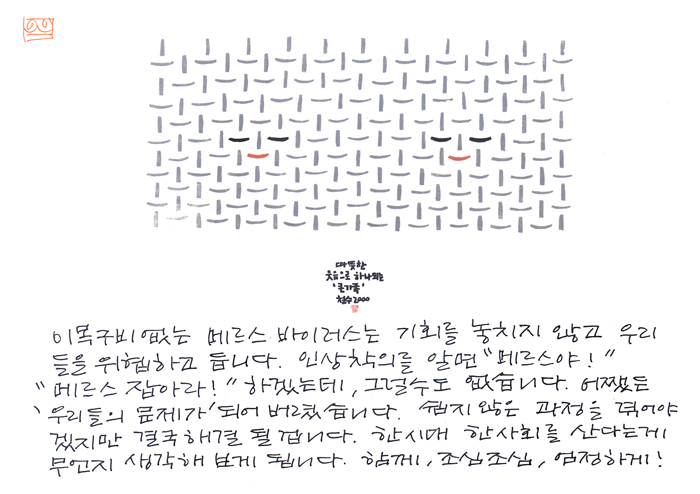 따뜻한
웃음으로 하나되는
'큰가족'
철수2000
이목구비 없는 메르스 바이러스는 기회를 놓치지 않고 우리
들을 위협하고 듭니다. 인상착의를 알면 "메르스야!"
"메르스 잡아라!" 하겠는데, 그럴수도 없습니다. 어쨌든
'우리들의 문제가' 되어 버렸습니다. 쉽지 않은 과정을 겪어야
겠지만 결국 해결 될 겁니다. 한시대 한사회를 산다는게
무언지 생각해 보게 됩니다. 함께, 조심조심, 엄정하게!